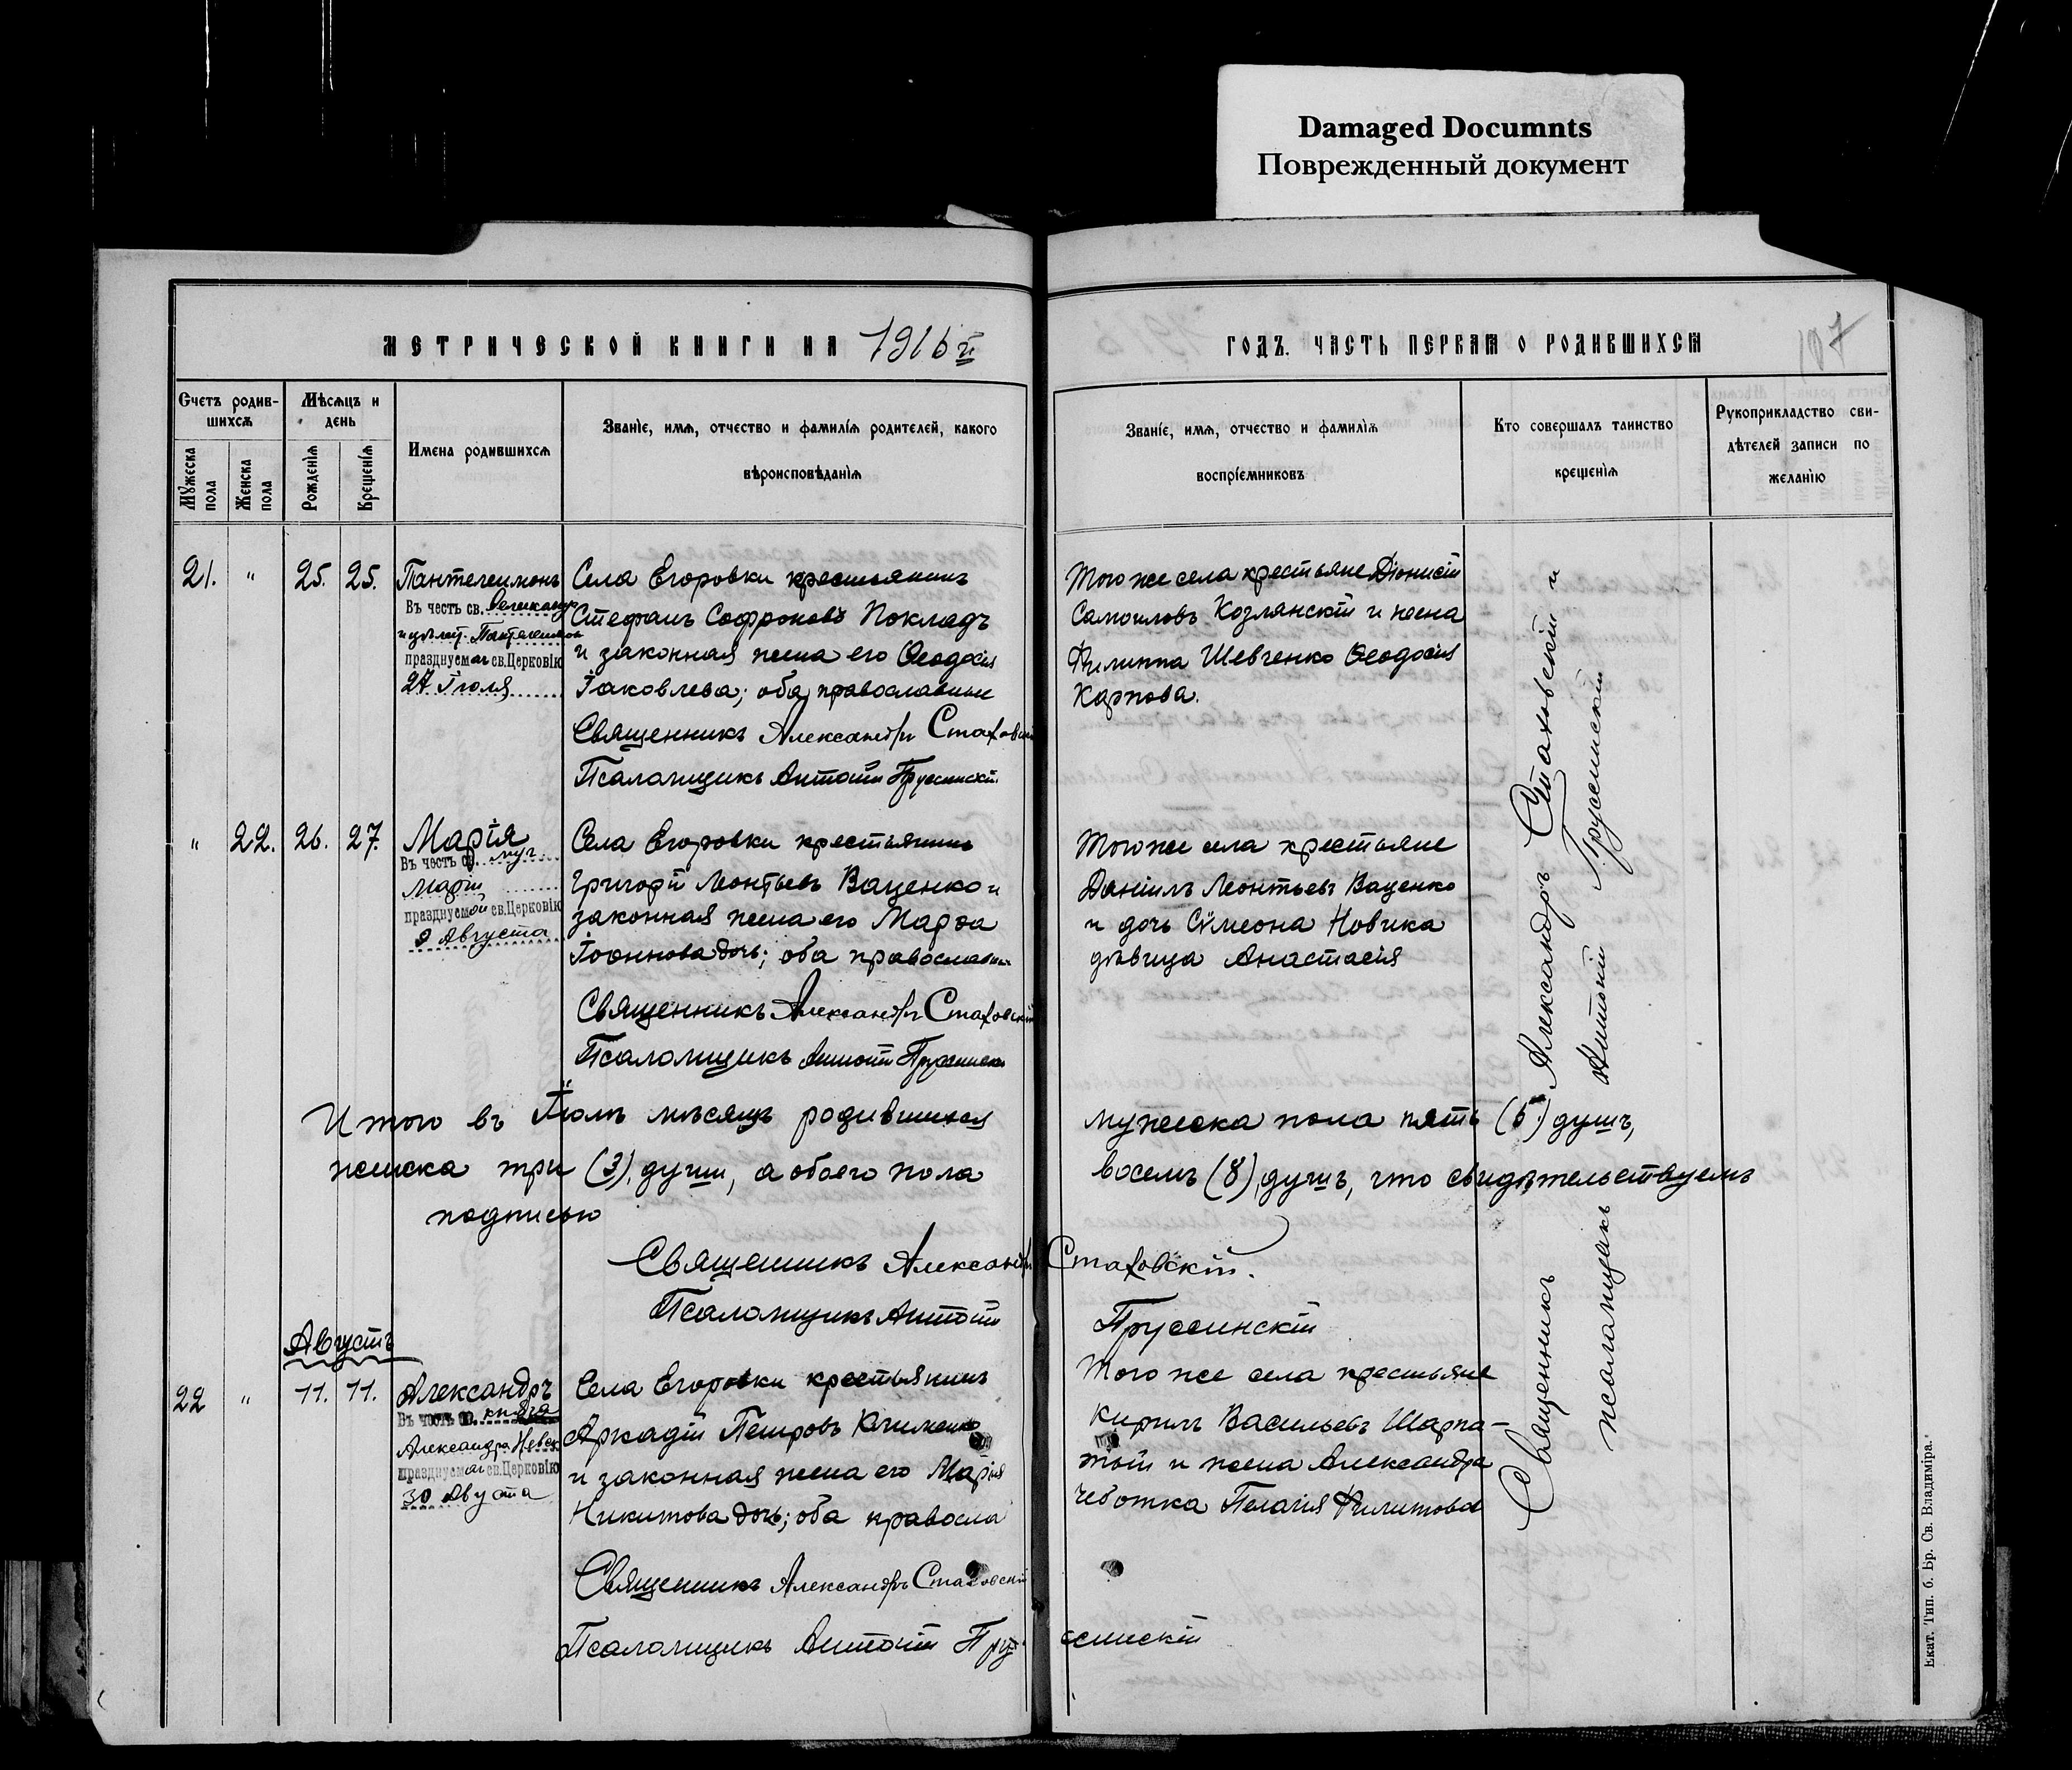 Damaged Documnts
Поврежденный документ
МЕТРИЧЕСКОЙ КНИГИ НА 1916 й
ГОДЪ. ЧАСТЬ ПЕРВАѦ О РОДИВШИХСѦ
107
Счетъ родив-
шихсѧ
Мѣсѧцъ и
день
Мꙋжеска
пола
Женска
пола
Рожденїѧ
Крещенїѧ
Имена родившихсѧ
Званїе, имѧ, отчество и фамилїѧ родителей, какого
вѣроисповѣданїѧ
Званїе, имѧ, отчество и фамилїѧ
воспрїемниковъ
Кто совершалъ таинство
крещенїѧ
Рукоприкладство сви-
дѣтелей записи по
желанїю
21. " 25. 25.
Пантелеимонъ
Въ честь св. Великомуч
и цѣлит. Пантелеимон
празднуемаго св. Церковію
27 Іюля
Села Егоровки крестьянинъ
Стефанъ Софроновъ Покладъ
и законная жена его Ѳеодосія
Іаковлева; оба православные
Священникъ Александръ Стаховскій
Псаломщикъ Антоній Пруссинскій
Того же села крестьяне Діонисій
Самоиловъ Козлянскій и жена
Филиппа Шевченко Ѳеодосія
Карпова.
" 22. 26. 27.
Марія
Въ честь св. муч
Маріи
празднуемой св. Церковію
9 Августа
Села Егоровки крестьянинъ
Григорій Леонтьевъ Ваценко и
законная жена его Марѳа
Іоаннова дочь; оба православны
Священникъ Александръ Стаховскій
Псаломщикъ Антоній Пруссинскі
Того же села крестьяне
Даніилъ Леонтьевъ Ваценко
и дочь Сѵмеона Новика
дѣвица Анастасія
Итого въ Іюлѣ мѣсяцѣ родившихся
мужеска пола пять (5) душъ,
женска три (3), души, а обоего пола
восемь (8), душъ, что свидѣтельствуемъ
подписью
Священникъ Александръ Стаховскій.
Псаломщикъ Антоній Пруссинскій
Августъ
22 " 11. 11.
Александръ
Въ честь св. князя
Александра Невск
празднуемаго св. Церковію
30 Августа
Села Егоровки крестьянинъ
Аркадій Петровъ Клименко
и законная жена его Марія
Никитова дочь; оба правосла
Священникъ Александръ Стаховскій
Псаломщикъ Антоній Пруссинскій
Того же села крестьяне
Кирилъ Васильевъ Шарпа-
той и жена Александра
Чеботка Пелагія Филипова
Священникъ Александръ Стаховскій и
псаломщикъ Антоній Пруссинскій
Екат. Тип. б. Бр. Св. Владиміра.